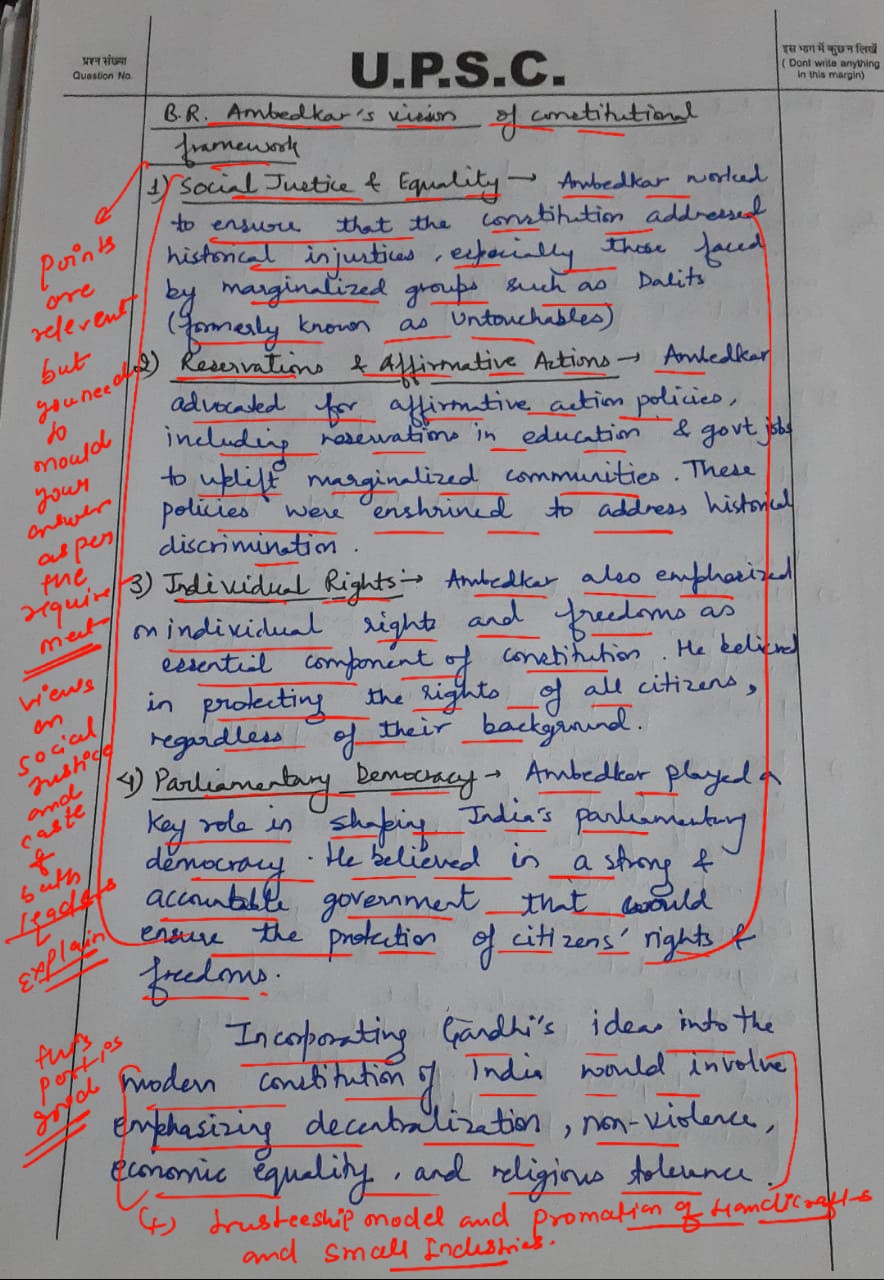 प्रश्न संख्या
Question No.
U.P.S.C.
इस भाग में कुछ न लिखें
( Dont write anything
in this margin)
B.R. Ambedkar's vision of constitutional
framework
1) Social Justice & Equality → Ambedkar worked
to ensure that the constitution addressed
historical injustices, especially those faced
by marginalized groups such as Dalits
(formerly known as Untouchables)
2) Reservations & Affirmative Actions → Ambedkar
advocated for affirmative action policies,
including reservations in education & govt jobs
to uplift marginalized communities. These
policies were enshrined to address historical
discrimination.
3) Individual Rights:→ Ambedkar also emphasized
on individual rights and freedoms as
essential component of constitution. He believed
in protecting the rights of all citizens,
regardless of their background.
4) Parliamentary Democracy → Ambedkar played a
key role in shaping India's parliamentary
democracy. He believed in a strong &
accountable government that would
ensure the protection of citizens' rights &
freedoms.
Incorporating Gandhi's ideas into the
modern constitution of India would involve
emphasizing decentralization, non-violence,
economic equality, and religious tolerance.
points
are
relevent
but
you need
to
mould
your
answer
as per
the
require
ment
views
on
social
Justice
and
caste
of
both
leaders
explain
this
part is
good
(+) trusteeship model and promation of Handicrafts
and small Industries.